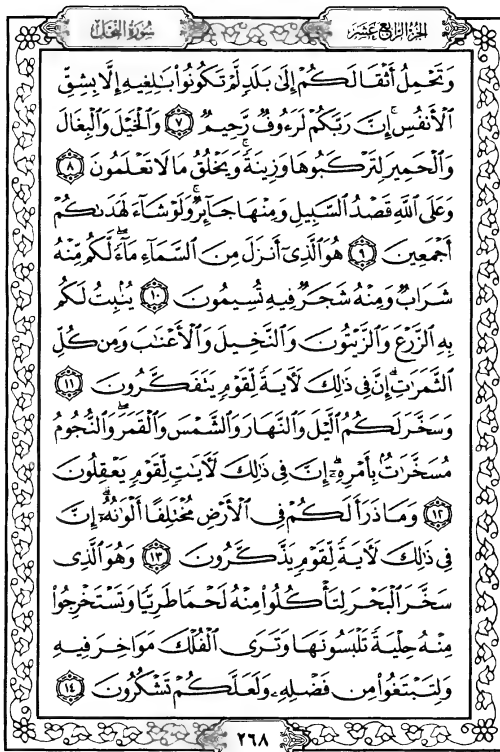 الجزء الرابع عشر سورة النحل
وَتَحْمِلُ أَثْقَالَكُمْ إِلَىٰ بَلَدٍ لَّمْ تَكُونُوا۟ بَٰلِغِيهِ إِلَّا بِشِقِّ
ٱلْأَنفُسِ ۚ إِنَّ رَبَّكُمْ لَرَءُوفٌ رَّحِيمٌ ٧ وَٱلْخَيْلَ وَٱلْبِغَالَ
وَٱلْحَمِيرَ لِتَرْكَبُوهَا وَزِينَةً ۚ وَيَخْلُقُ مَا لَا تَعْلَمُونَ ٨
وَعَلَى ٱللَّهِ قَصْدُ ٱلسَّبِيلِ وَمِنْهَا جَآئِرٌ ۚ وَلَوْ شَآءَ لَهَدَىٰكُمْ
أَجْمَعِينَ ٩ هُوَ ٱلَّذِىٓ أَنزَلَ مِنَ ٱلسَّمَآءِ مَآءً ۖ لَّكُم مِّنْهُ
شَرَابٌ وَمِنْهُ شَجَرٌ فِيهِ تُسِيمُونَ ١٠ يُنۢبِتُ لَكُم
بِهِ ٱلزَّرْعَ وَٱلزَّيْتُونَ وَٱلنَّخِيلَ وَٱلْأَعْنَٰبَ وَمِن كُلِّ
ٱلثَّمَرَٰتِ ۗ إِنَّ فِى ذَٰلِكَ لَءَايَةً لِّقَوْمٍ يَتَفَكَّرُونَ ١١
وَسَخَّرَ لَكُمُ ٱلَّيْلَ وَٱلنَّهَارَ وَٱلشَّمْسَ وَٱلْقَمَرَ ۖ وَٱلنُّجُومُ
مُسَخَّرَٰتٌۢ بِأَمْرِهِۦٓ ۗ إِنَّ فِى ذَٰلِكَ لَءَايَٰتٍ لِّقَوْمٍ يَعْقِلُونَ
١٢ وَمَا ذَرَأَ لَكُمْ فِى ٱلْأَرْضِ مُخْتَلِفًا أَلْوَٰنُهُۥٓ ۗ إِنَّ
فِى ذَٰلِكَ لَءَايَةً لِّقَوْمٍ يَذَّكَّرُونَ ١٣ وَهُوَ ٱلَّذِى
سَخَّرَ ٱلْبَحْرَ لِتَأْكُلُوا۟ مِنْهُ لَحْمًا طَرِيًّا وَتَسْتَخْرِجُوا۟
مِنْهُ حِلْيَةً تَلْبَسُونَهَا وَتَرَى ٱلْفُلْكَ مَوَاخِرَ فِيهِ
وَلِتَبْتَغُوا۟ مِن فَضْلِهِۦ وَلَعَلَّكُمْ تَشْكُرُونَ ١٤
٢٦٨